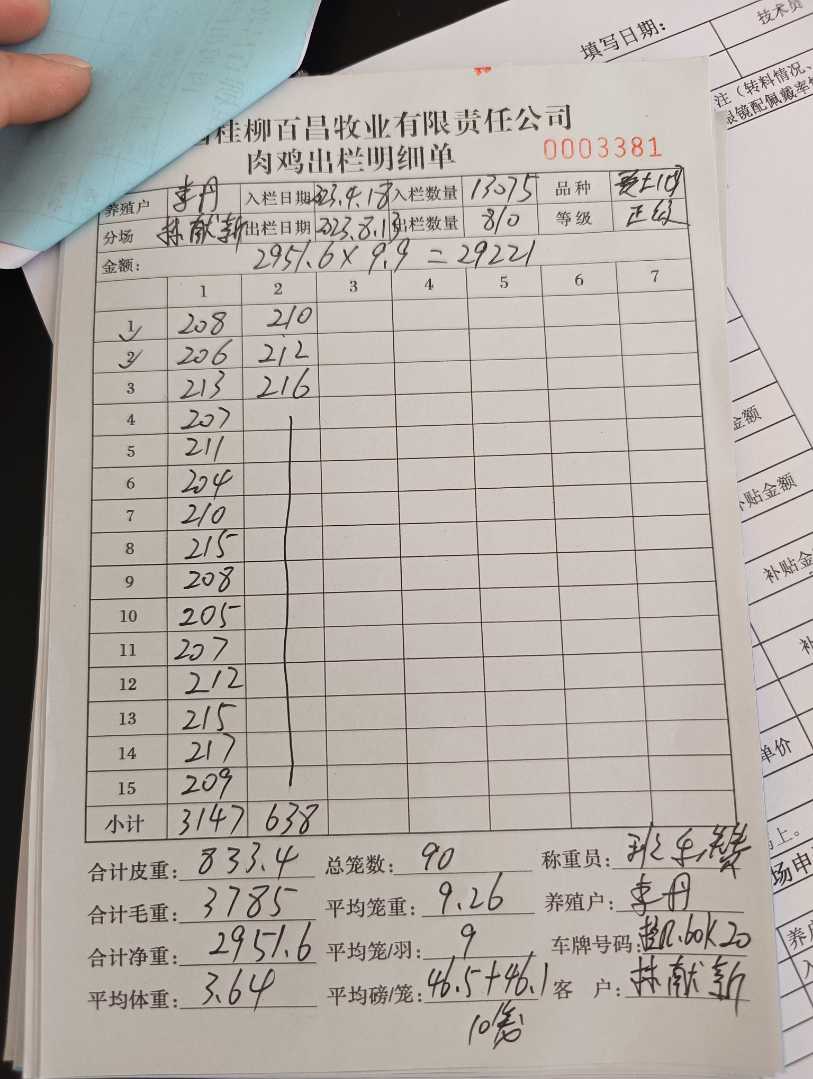 填写日期:
技术员
注（转料情况、
眼镜配佩戴率
桂柳百昌牧业有限责任公司
肉鸡出栏明细单 0003381
养殖户 李丹 入栏日期 2023.4.18 入栏数量 13075 品种
分场 林献新 出栏日期 2023.8.13 出栏数量 810 等级 正级
金额: 2951.6×9.9=29221
1 2 3 4 5 6 7
1 208 210
2 206 212
3 213 216
4 207
5 211
6 204
7 210
8 215
9 208
10 205
11 207
12 212
13 215
14 217
15 209
小计 3147 638
合计皮重: 833.4 总笼数: 90 称重员:
合计毛重: 3785 平均笼重: 9.26 养殖户: 李丹
合计净重: 2951.6 平均笼/羽: 9 车牌号码:
平均体重: 3.64 平均磅/笼: 46.5+46.1 客 户: 林献新
10笼
金额
补贴金额
补贴金
单价
上。
场申
养户